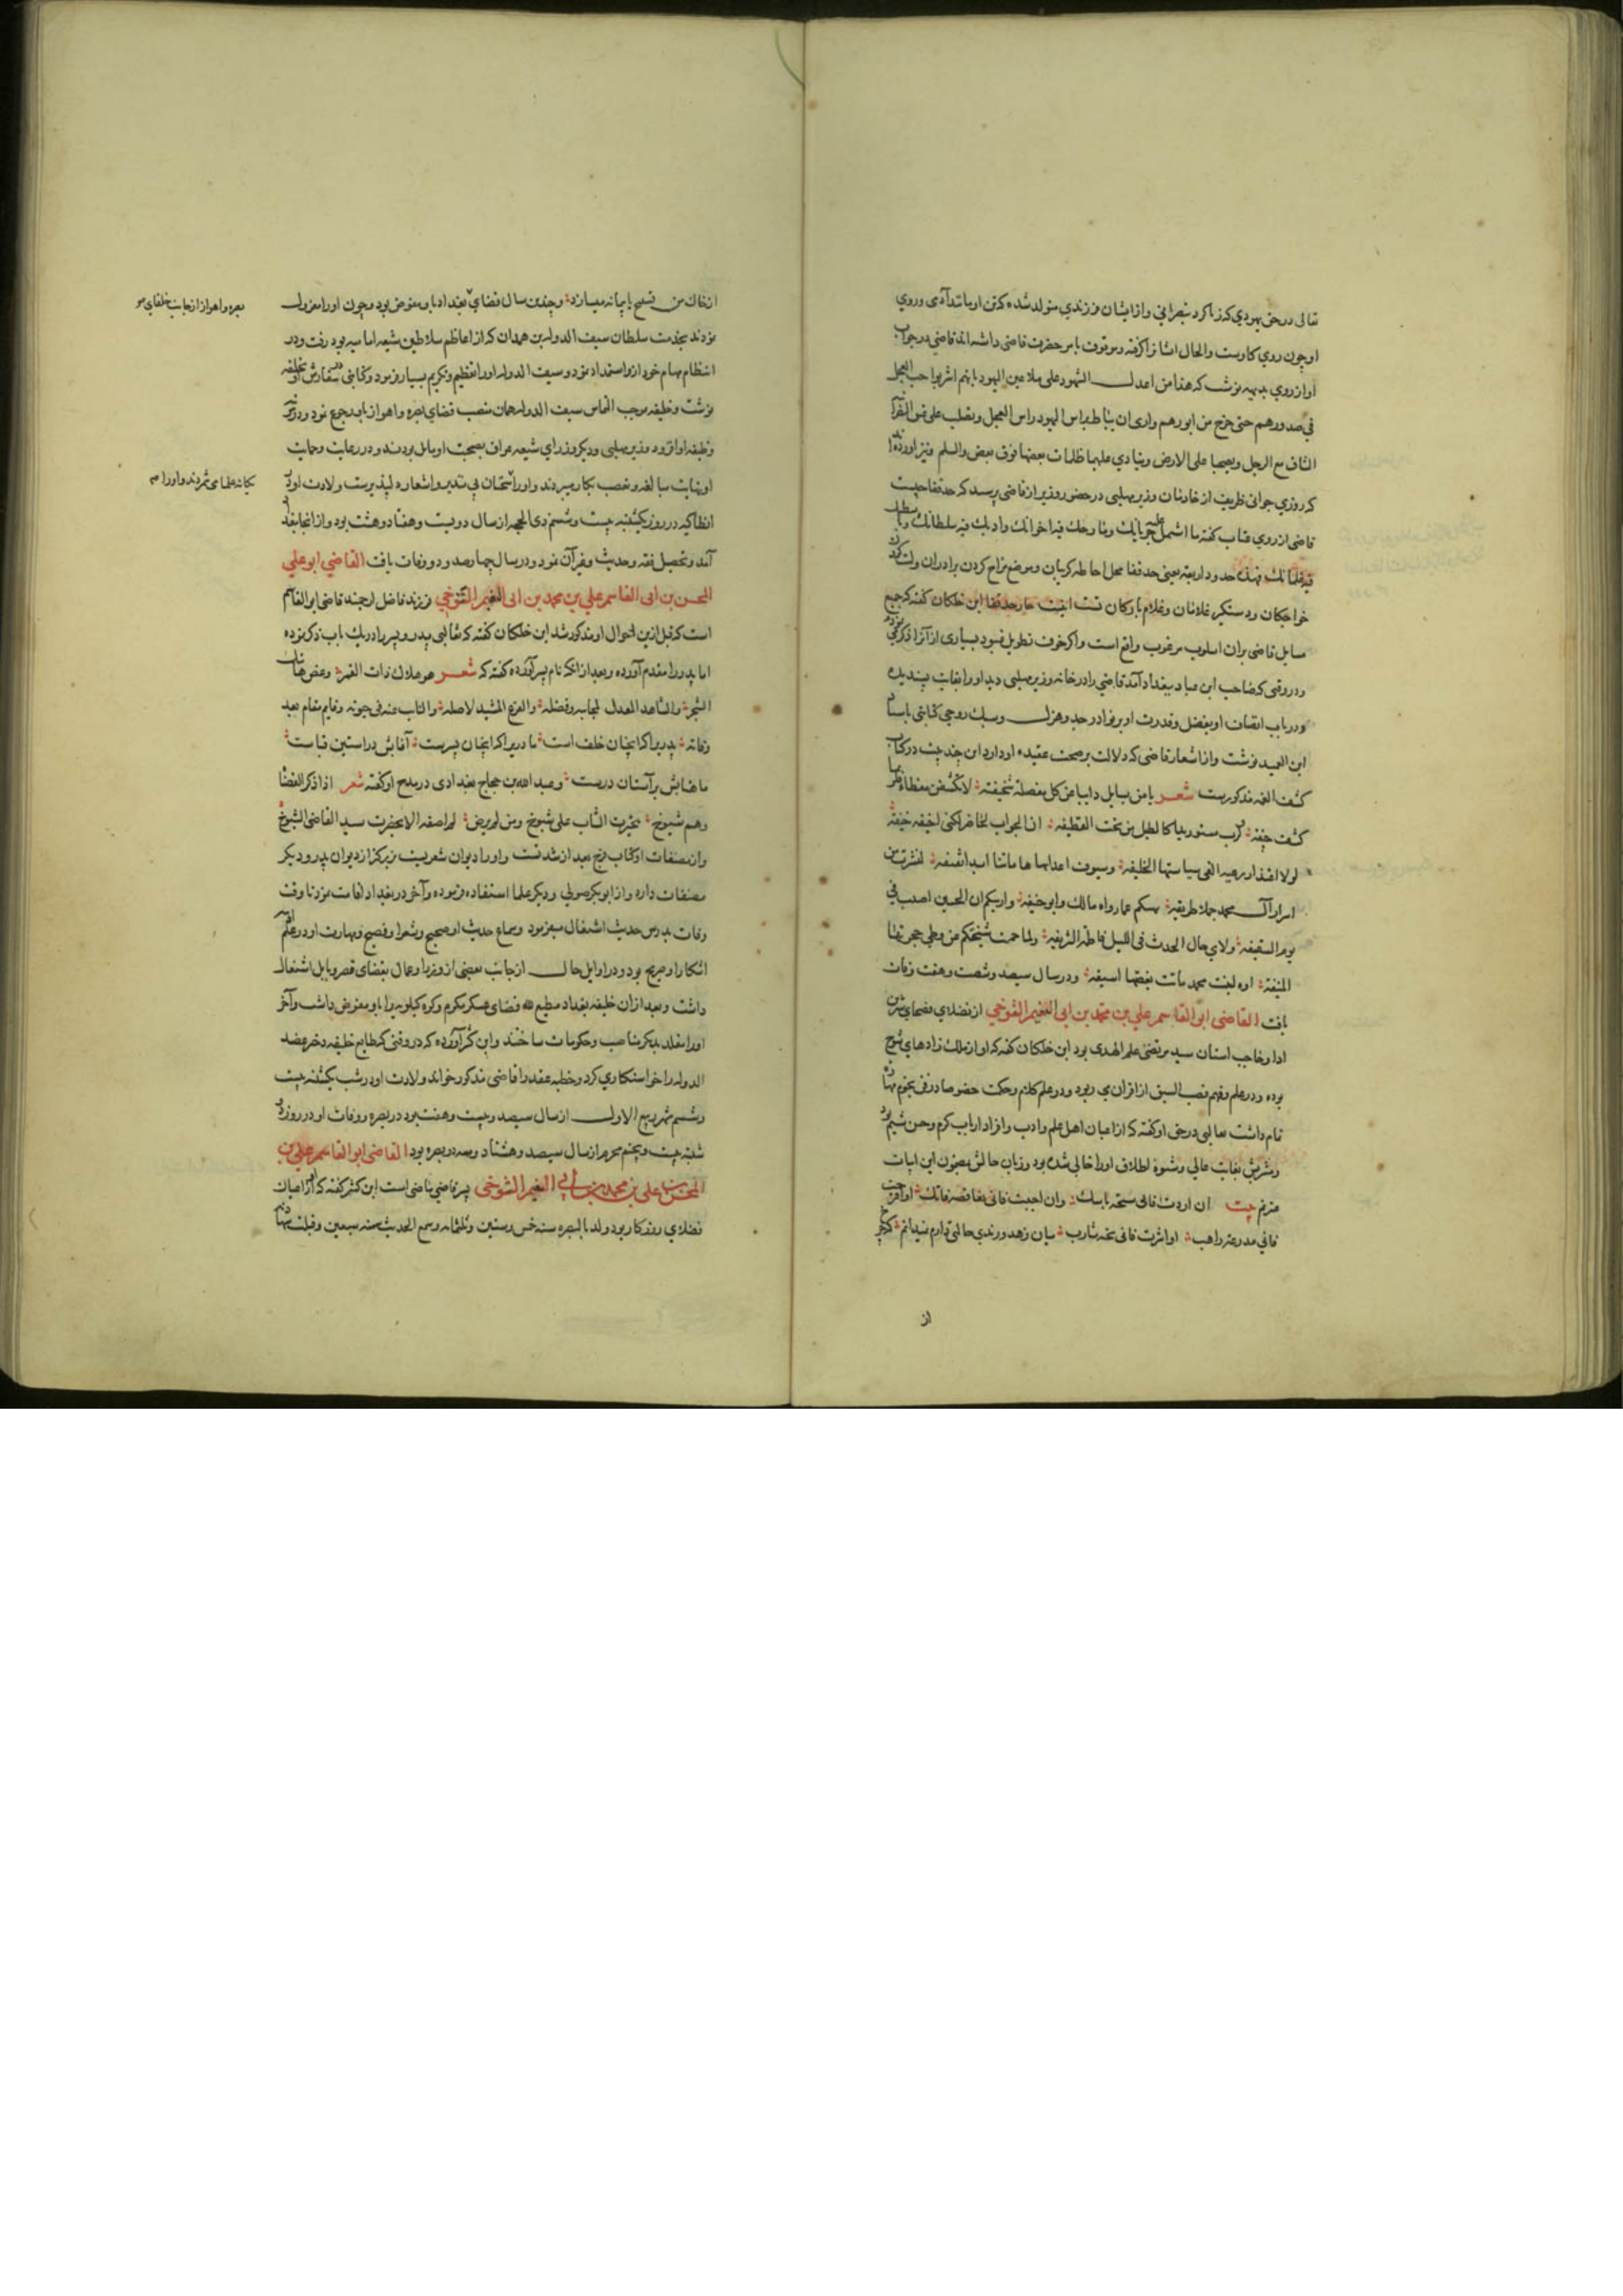 تعالی در حق یهودی که زنا کرد بنصرانی و از ایشان فرزندی متولد شده که تن او مانند آدمی و روی
او چون روی کاوست والحال انها را گرفته و موقوف بامر حضرت قاضی داشته اند قاضی در جواب
او از روی بدیهه نوشت که هذا من اعدل الشهود علی ملاعین الیهود بانهم اشربوا حب العجل
فی صدورهم حتی خرج من ایورهم واری ان یناط براس الیهود راس العجل ویصلب علی عنق النصرانیة
الساق مع الرجل ویسحبا علی الارض وینادی علیهما ظلمات بعضها فوق بعض والسلم و نیز آورده
که روزی جوانی ظریف از خادمان وزیر مهلبی در حضور وزیر از قاضی پرسید که حد قفا چیست
قاضی از روی عتاب گفته ما اشتمل علیه جربانك ومازحك فیه اخوانك وادبك فیه سلطانك و
فیه غلمانك فهذه حدود اربعة یعنی حد قفا محل احاطه گریبان و موضع مزاح کردن برادران و
خواجکان و دستگیر غلامان و غلام بارکان تست اینست چار حد قفا ابن خلکان گفته که جمیع
مسایل قاضی بران اسلوب مرغوب واقع است و اکر خوف تطویل نبود بسیاری از آنرا ذکر می
و در وقتی که صاحب ابن عباد ببغداد آمد قاضی را در خانه وزیر مهلبی دید و او را بغایت پسندیده
و در باب اتصاف او بفضل و قدرت او بر نوادر جد و هزل و سبك روحی کتابتی باستاد
ابن العمید نوشت و از اشعار قاضی که دلالت بر صحت عقیده او دارد این چند بیت در کتاب
کشف الغمه مذکورست شعر یا من یسایل دایبا عن کل معضلة سخیفة لا تکشفن مغطاء فلربما
کشفت جیفة و لرب مستور بدا کالطبل من تحت القطیفة ان الجواب لحاضر لکنی اخفیه خیفة
لولا اعتذار رعیة الغی سیاستها الخلیفة وسیوف اعدا بها هاماتنا ابدا نقیفة لنشرت من
اسرار آل محمد جملا طریفة یغنیکم عما رواه مالك وابو حنیفة واریکم ان الحسین اصیب فی
یوم السقیفة ولای حال الحدت فی اللیل فاطمة الشریفة ولما حمت شیخیکم عن وطی حجرتها
المنیفة اوه لبنت محمد ماتت بغصتها اسیفة و در سال سیصد و شصت و هفت وفات
یافت القاضی ابو القاسم علی بن محمد بن ابی الفهیم التنوخی از فضلای فصحای شیرین
ادا و خاجب استان سید مرتضی علم الهدی بود ابن خلکان گفته که او از ملك زادهای تنوخ
بوده و در علم و فهم قصب السبق از اقران می ربود و در علم کلام و حکمت خصوصا در فن نجوم مهارت
تام داشت ثعالبی در حق او گفته که از اعیان اهل علم و ادب و افراد ارباب کرم و حسن شیم بود
و مشربش بغایت عالی و شیوه اطلاق او را حالی شده بود و زبان حالش بمضمون این ابیات
مترنم بیت ان اردت فانی سبحة ناسك وان احببت فانی تفاحة فاتك او اقترحت
فانی مدرعة راهب او اثرت فانی نخبة شارب میان زهد و رندی حالتی دارم نمیدانم که چرخ
از
از خاك من تسبیح یا پیمانه میسازد و چندین سال قضای بغداد باو مفوض بود و چون او را معزول
بصره و اهواز از جانب خلفای
نمودند بخدمت سلطان سیف الدوله بن حمدان که از اعاظم سلاطین شیعه امامیه بود رفت و در
انتظام مهام خود از او استمداد نمود و سیف الدوله او را تعظیم و تکریم بسیار فرمود و کتابتی در سفارش او بخلیفه
نوشت و خلیفه بموجب التماس سیف الدوله همان منصب قضای بصره و اهواز باو رجوع نمود و در
وظیفه او افزود و وزیر مهلبی و دیگر وزرای شیعه عراق بصحبت او مایل بودند و در رعایت و حمایت
او نهایت مبالغه و تعصب بکار میبردند و او را
یگانه علما می شمردند و او را
انطاکیه در روز یکشنبه بیست و ششم ذی الحجه از سال دویست و هفتاد و هشت بود و از انجا ببغداد
آمد و تحصیل فقه و حدیث و قرآن نمود و در سال چهارصد و دو وفات یافت القاضی ابو علی
المحسن بن ابی القاسم علی بن محمد بن ابی الفهیم التنوخی فرزند فاضل ارجمند قاضی ابو القاسم
است که قبل ازین احوال او مذکور شد ابن خلکان گفته که ثعالبی پدر و پسر را در یك باب ذکر نموده
اما پدر را مقدم آورده و بعد از آنکه نام پسر آورده گفته که شعر هو هلال ذات القمر و غصن هاتیك
الشجر والشاهد العدل لمجد ابیه وفضله والفرع المشید لاصله والنائب عنه فی حیوته وقایم مقام بعد
وفاته پدر را که انچنان خلف است مادری را که انچنان پسرست آفتابش در آستین قباست
ماهتابش بر آستان درست و عبد الله بن حجاج بغدادی در مدح او گفته شعر اذا ذکر القضاة
وهم شیوخ تخیرت الشباب علی الشیوخ ومن لم یرض لم اصفعه الا بحضرت سید القاضی التنوخی
و از مصنفات او کتاب فرج بعد از شدتست و او را دیوان شعریست بزرگتر از دیوان پدر و دیگر
مصنفات دارد و از ابو بکر صولی و دیگر علما استفاده فرموده و آخر در بغداد اقامت نمود تا وقت
وفات بدرس حدیث اشتغال میفرمود و سماع حدیث او صحیح و شعر او فصیح و مهارت او در علم
اشکارا و صریح بود و در اوایل حال از جانب بعضی از وزرا و عمال بقضای قصر و بابل اشتغال
داشت و بعد از ان خلیفه بغداد مطیع لله قضای عسکر مکرم و کوه کیلویه را باو مفوض داشت و آخر
او را متقلد بدیگر مناصب و حکومات ساختند و ابن کثیر آورده که در وقتی که طایع خلیفه دختر عضد
الدوله را خواستکاری کرد و خطبه عقد را قاضی مذکور خواند و ولادت او در شب یکشنبه بیست
و ششم شهر ربیع الاول از سال سیصد و بیست و هفت بود در بصره و وفات او در روز دو
شنبه بیست و پنجم محرم از سال سیصد و هشتاد و سه در بصره بود القاضی ابو القاسم علی بن
المحسن بن علی بن محمد بن ابی الفهیم التنوخی پسر قاضی ماضی است ابن کثیر گفته که او از اعیان
فضلای روزکار بود ولد بالبصره سنه خمس وستین وثلثمائه وسمع الحدیث سنه سبعین وقبلت شهادته